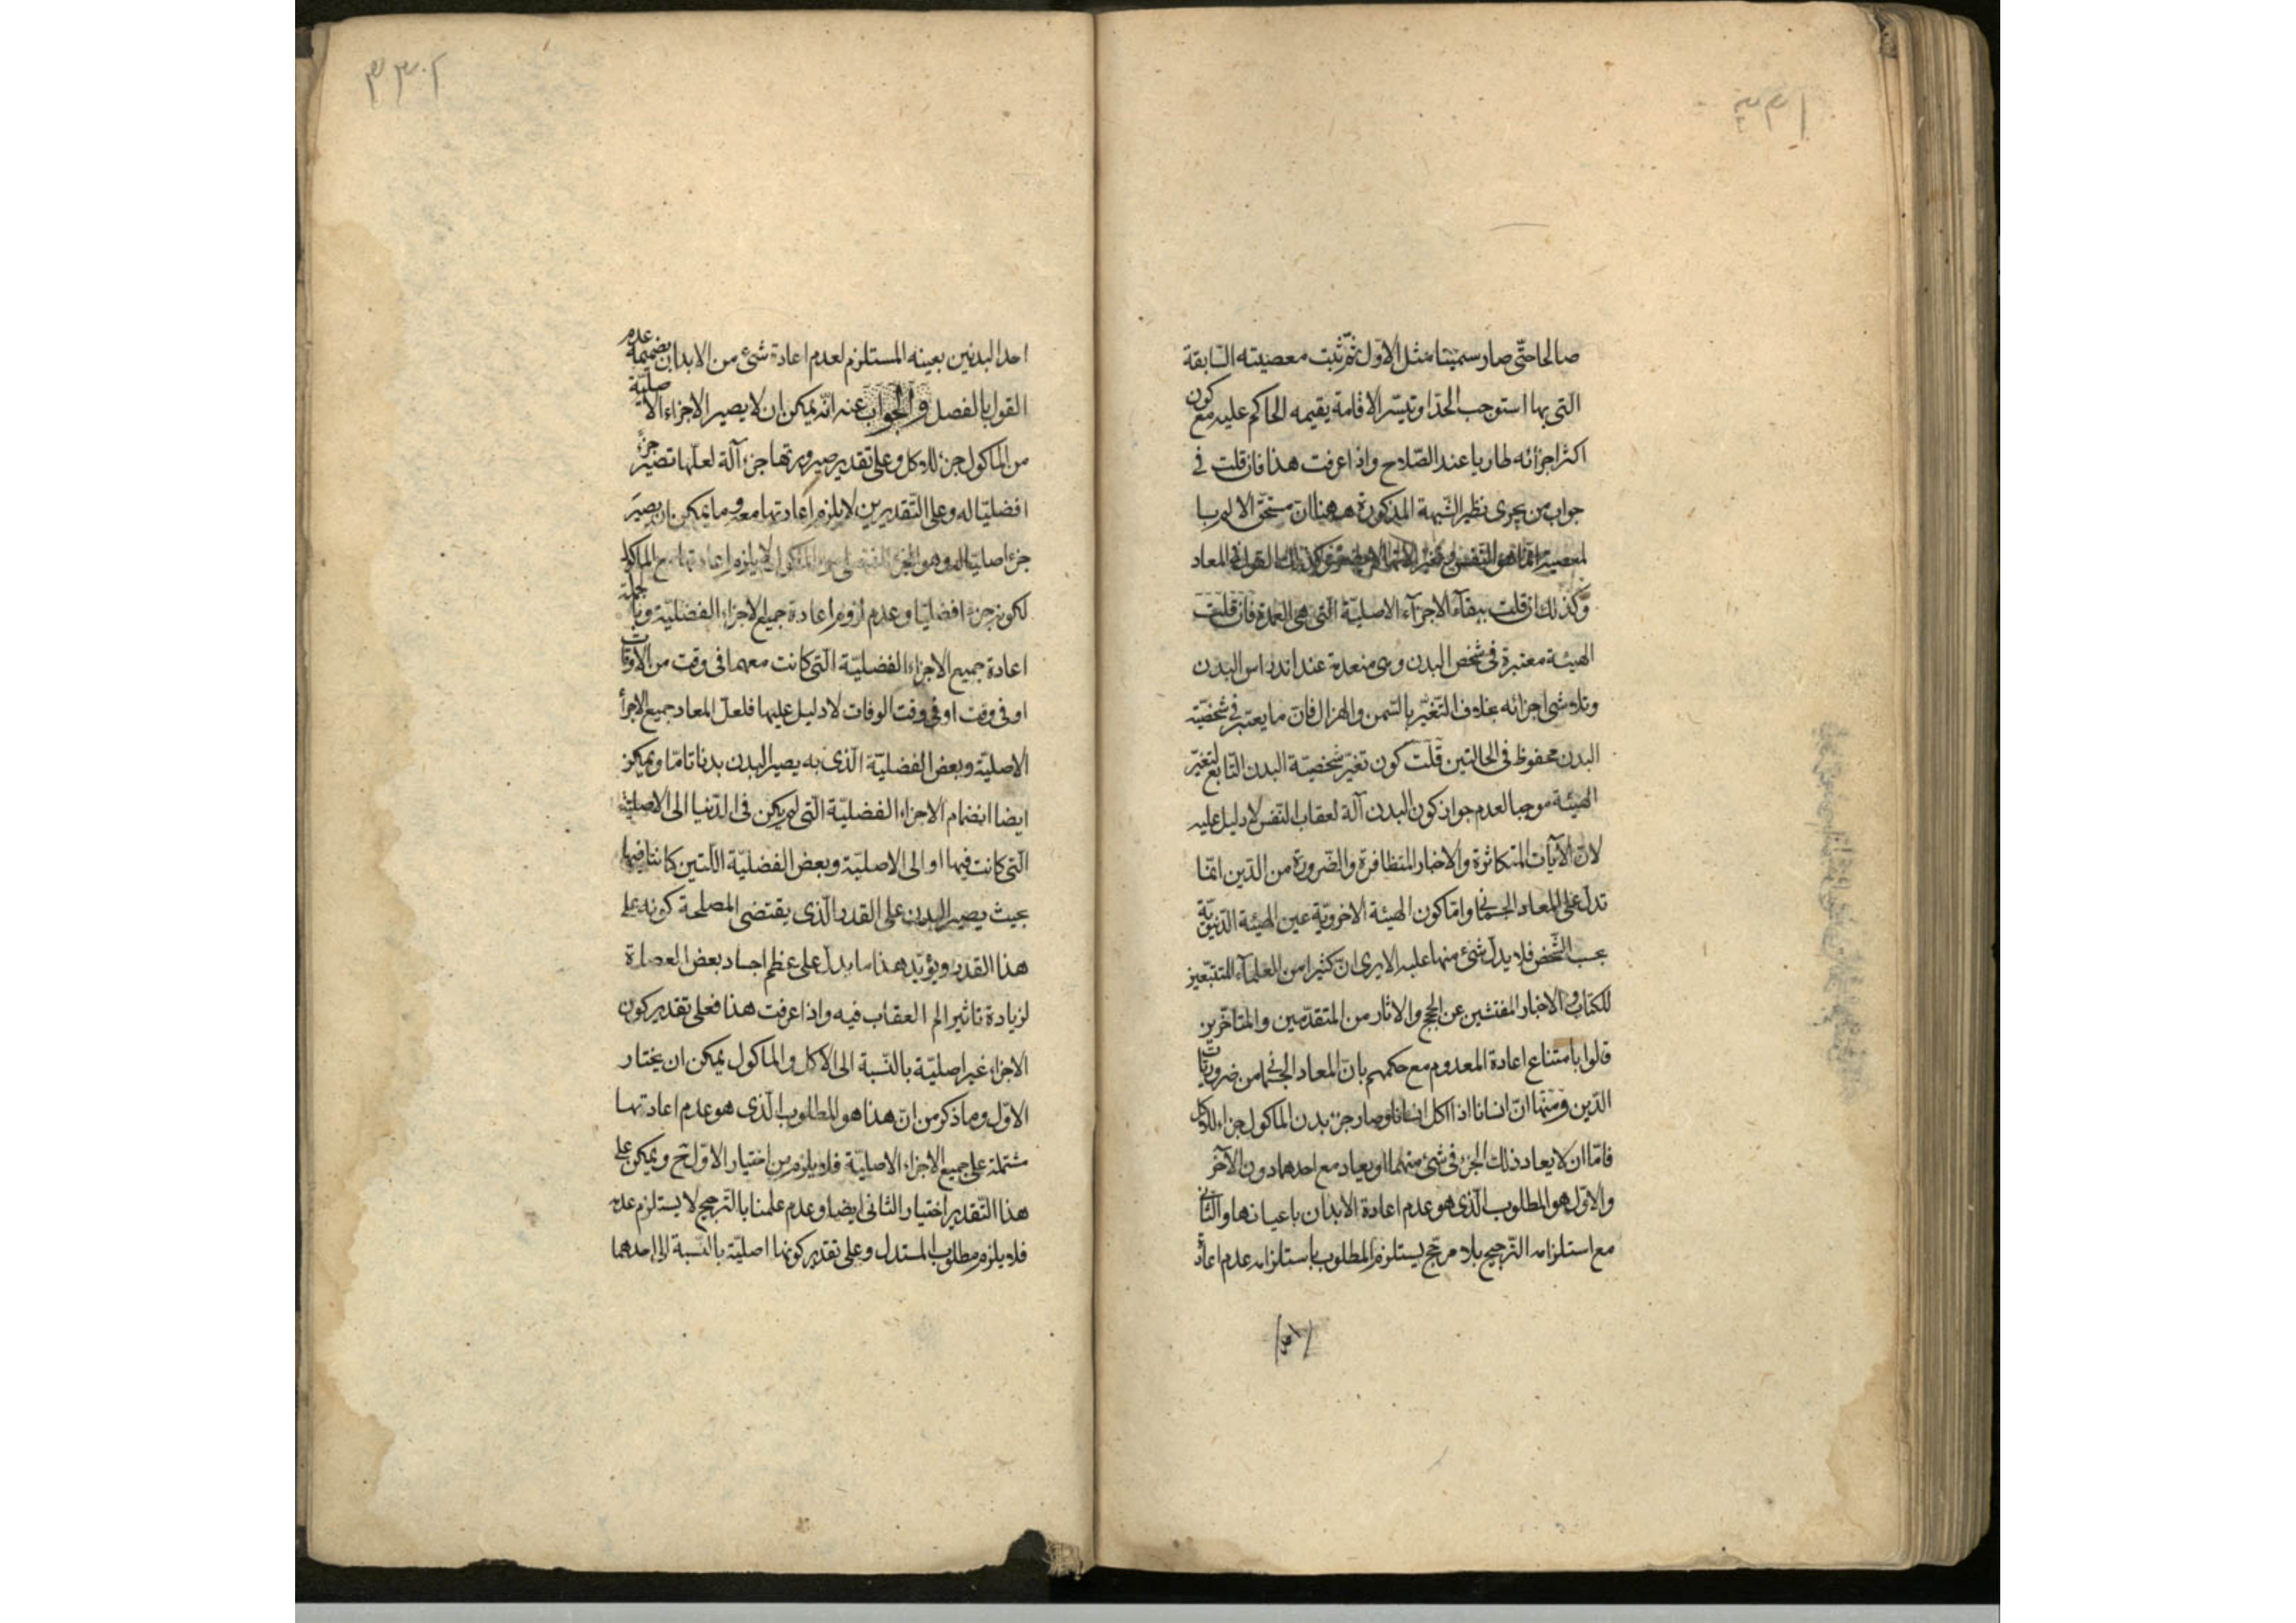 صالحا حتّى صار سمينا مثل الاوّل ثمّ ثبت معصيته السّابقة
التى بها استوجب الحدّ او تيسّر الاقامة يقيمه الحاكم عليه مع كون
اكثر اجزائه طاريا عند الصّلاح واذا عرفت هذا فان قلت فى
جواب من يجرى نظير الشّبهة المذكورة ههنا انّ مستحقّ الالم با
لمعصية انّما هو النّفس المعاد
وكذلك ان قلت ببقآء الاجزآء الاصليّة الّتى هى العمدة فان قلت
الهيئة معتبرة فى شخص البدن وهى منعدمة عند اندراس البدن
وتلاشى اجزائه بخلاف التّغيّر بالسّمن والهزال فانّ ما يعتبر فى شخصيّة
البدن محفوظ فى الحالتين قلت كون تغيّر شخصيّة البدن التّابع لتغيّر
الهيئة موجبا لعدم جواز كون البدن آلة لعقاب النّفس لا دليل عليه
لانّ الآيات المتكاثرة والاخبار المتظافرة والضّرورة من الدّين انّما
تدلّ على المعاد الجسمانى وامّا كون الهيئة الاخرويّة عين الهيئة الدّنيويّة
بحسب الشّخص فلا يدلّ شئ منها عليه الا يرى انّ كثيرا من العلمآء المتتبّعين
للكتاب والاخبار المفتّشين عن الحجج والاثار من المتقدّمين والمتاخّرين
قالوا بامتناع اعادة المعدوم مع حكمهم بانّ المعاد الجسمانى من ضروريّات
الدّين ومنها انّ انسانا اذا اكل انسانا وصار جزء بدن الماكول جزءا للاكل
فامّا ان لا يعاد ذلك الجزء فى شئ منهما او يعاد مع احدهما دون الآخر
والاوّل هو المطلوب الّذى هو عدم اعادة الابدان باعيانها والثّانى
مع استلزامه التّرجيح بلا مرجّح يستلزم المطلوب باستلزامه عدم اعادة
احد البدنين بعينه المستلزم لعدم اعادة شئ من الابدان بضميمة عدم
القول بالفصل والجواب عنه انّه يمكن ان لا يصير الاجزاء الاصليّة
من الماكول جزء للاكل وعلى تقدير صيرورتها جزء آلة لعلّها تصير جزء
افضليّا له وعلى التّقديرين لا يلزم اعادتها معه وما يمكن ان يصير
جزء اصليّا له وهو الجزء لا يلزم اعادتها مع الماكول
لكونه جزء افضليّا وعدم لزوم اعادة جميع الاجزاء الفضليّة وبالجملة
اعادة جميع الاجزاء الفضليّة الّتى كانت معهما فى وقت من الاوقات
او فى وقت او فى وقت الوفات لا دليل عليها فلعلّ المعاد جميع الاجزأ
الاصليّة وبعض الفضليّة الّذى به يصير البدن بدنا تامّا ويمكن
ايضا انضمام الاجزاء الفضليّة الّتى لم يكن فى الدّنيا الى الاصليّة
الّتى كانت فيها او الى الاصليّة وبعض الفضليّة اللّتين كانتا فيها
بحيث يصير البدن على القدر الّذى يقتضى المصلحة كونه على
هذا القدر ويؤيّد هذا ما يدلّ على عظم اجساد بعض العصاة
لزيادة تاثير الم العقاب فيه واذا عرفت هذا فعلى تقدير كون
الاجزاء غير اصليّة بالنّسبة الى الاكل والماكول يمكن ان يختار
الاوّل وما ذكر من انّ هذا هو المطلوب الّذى هو عدم اعادتهما
مشتملة على جميع الاجزاء الاصليّة فلا يلزم من اختيار الاوّل ح ويمكن على
هذا التّقدير اختيار الثّانى ايضا وعدم علمنا بالتّرجيح لا يستلزم عدمه
فلا يلزم مطلوب المستدل وعلى تقدير كونها اصليّة بالنّسبة الى احدهما